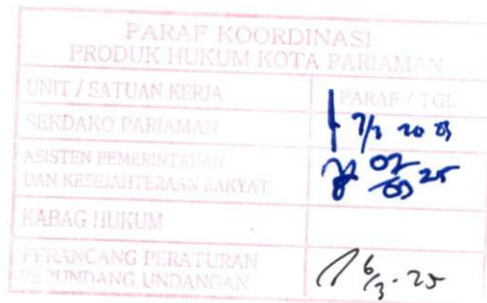 PARAF KOORDINASI
PRODUK HUKUM KOTA PARIAMAN
UNIT / SATUAN KERJA PARAF / TGL
SEKDAKO PARIAMAN 7/3 20
ASISTEN PEMERINTAHAN
DAN KESEJAHTERAAN RAKYAT 07/03 25
KABAG HUKUM
PERANCANG PERATURAN
PERUNDANG UNDANGAN 6/3-25